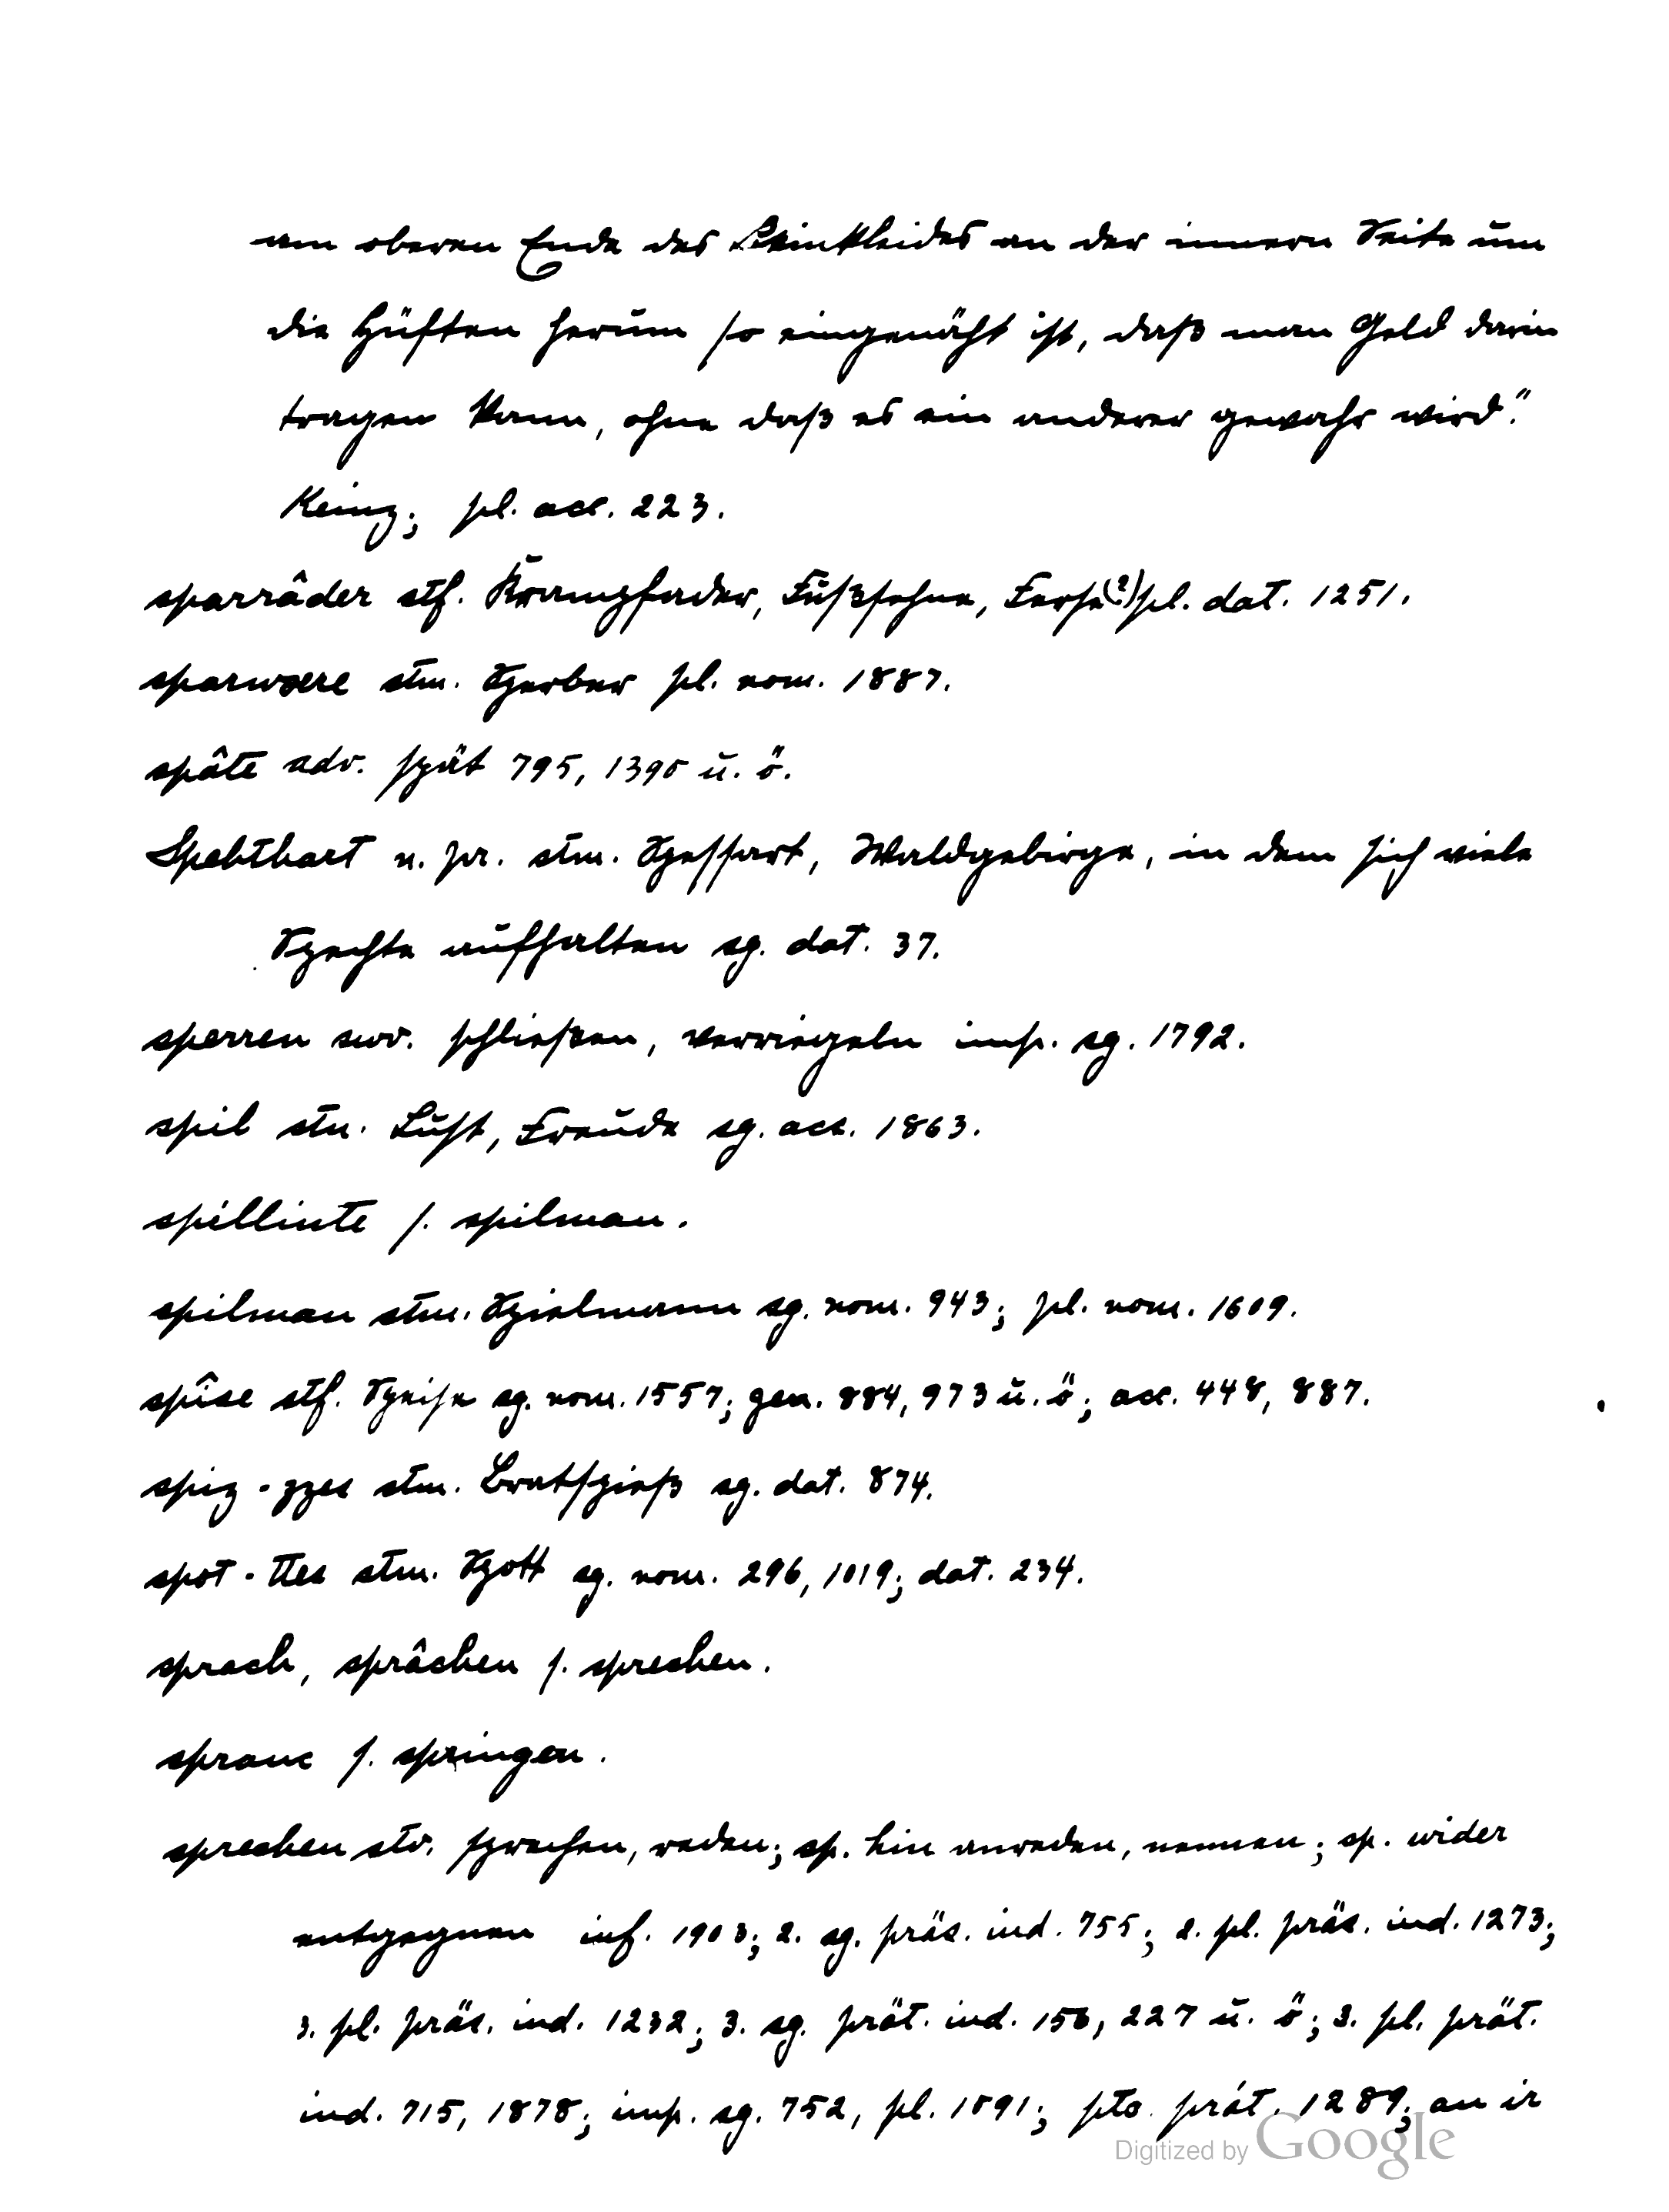 am oberen Ende des Beinkleides an der innern Seite um
die Hüften herum so eingenäht ist, daß man Geld darin
tragen kann, ohne daß es ein anderer gewahr wird."
Keinz; pl. acc. 223.
sparrâder stf. Krampfader, Fußsehne, Ferse(?) pl. dat. 1251.
sparwære stm. Sperber pl. nom. 1887.
spâte adv. spät 795, 1390 u. ö.
Spehthart n. pr. stm. Spessart, Waldgebirge, in dem sich viele
Spechte aufhalten sg. dat. 37.
sperren swv. schließen, verriegeln imp. sg. 1792.
spil stn. Lust, Freude sg. acc. 1863.
spilliute s. spilman.
spilman stm. Spielmann sg. nom. 943; pl. nom. 1609.
spîse stf. Speise sg. nom. 1557; gen. 884, 973 u. ö; acc. 448, 887.
spiz - zzes stm. Bratspieß sg. dat. 874.
spot - ttes stm. Spott sg. nom. 296, 1019; dat. 234.
sprach, sprâchen s. sprechen.
spranc s. springen.
sprechen stv. sprechen, reden; sp. hin anreden, nennen; sp. wider
entgegnen inf. 1903; 2. sg. präs. ind. 755; 2. pl. präs. ind. 1273;
3. pl. präs. ind. 1232; 3. sg. prät. ind. 156, 227 u. ö; 3. pl. prät.
ind. 715, 1878; imp. sg. 752, pl. 1091; ptc. prät. 1289; an ir
Digitized by Google